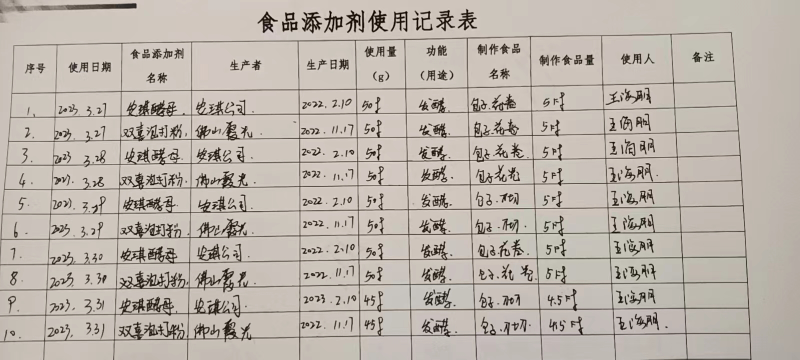 食品添加剂使用记录表
序号 使用日期 食品添加剂名称 生产者 生产日期 使用量（g） 功能（用途） 制作食品名称 制作食品量 使用人 备注
1. 2023.3.27 安琪酵母. 安琪公司. 2022.2.10 50g 发酵. 包子.花卷 5斤 王海朋
2. 2023.3.27 双喜泡打粉. 佛山霞光. 2022.11.17 50g 发酵. 包子.花卷 5斤 王海朋
3. 2023.3.28 安琪酵母. 安琪公司. 2022.2.10 50g 发酵. 包子.花卷 5斤 王海朋
4. 2023.3.28 双喜泡打粉. 佛山霞光. 2022.11.17 50g 发酵. 包子.花卷 5斤 王海朋.
5. 2023.3.29 安琪酵母. 安琪公司. 2022.2.10 50g 发酵. 包子. 5斤 王海朋
6. 2023.3.29 双喜泡打粉. 佛山霞光. 2022.11.17 50g 发酵. 包子. 5斤 王海朋
7. 2023.3.30 安琪酵母. 安琪公司. 2022.2.10 50g 发酵. 包子.花卷 5斤 王海朋
8. 2023.3.30 双喜泡打粉. 佛山霞光. 2022.11.17 50g 发酵. 包子.花卷. 5斤 王海朋
9. 2023.3.31 安琪酵母. 安琪公司. 2023.2.10 45g 发酵. 包子. 4.5斤 王海朋
10. 2023.3.31 双喜泡打粉. 佛山霞光 2022.11.17 45g 发酵. 包子. 4.5斤 王海朋.